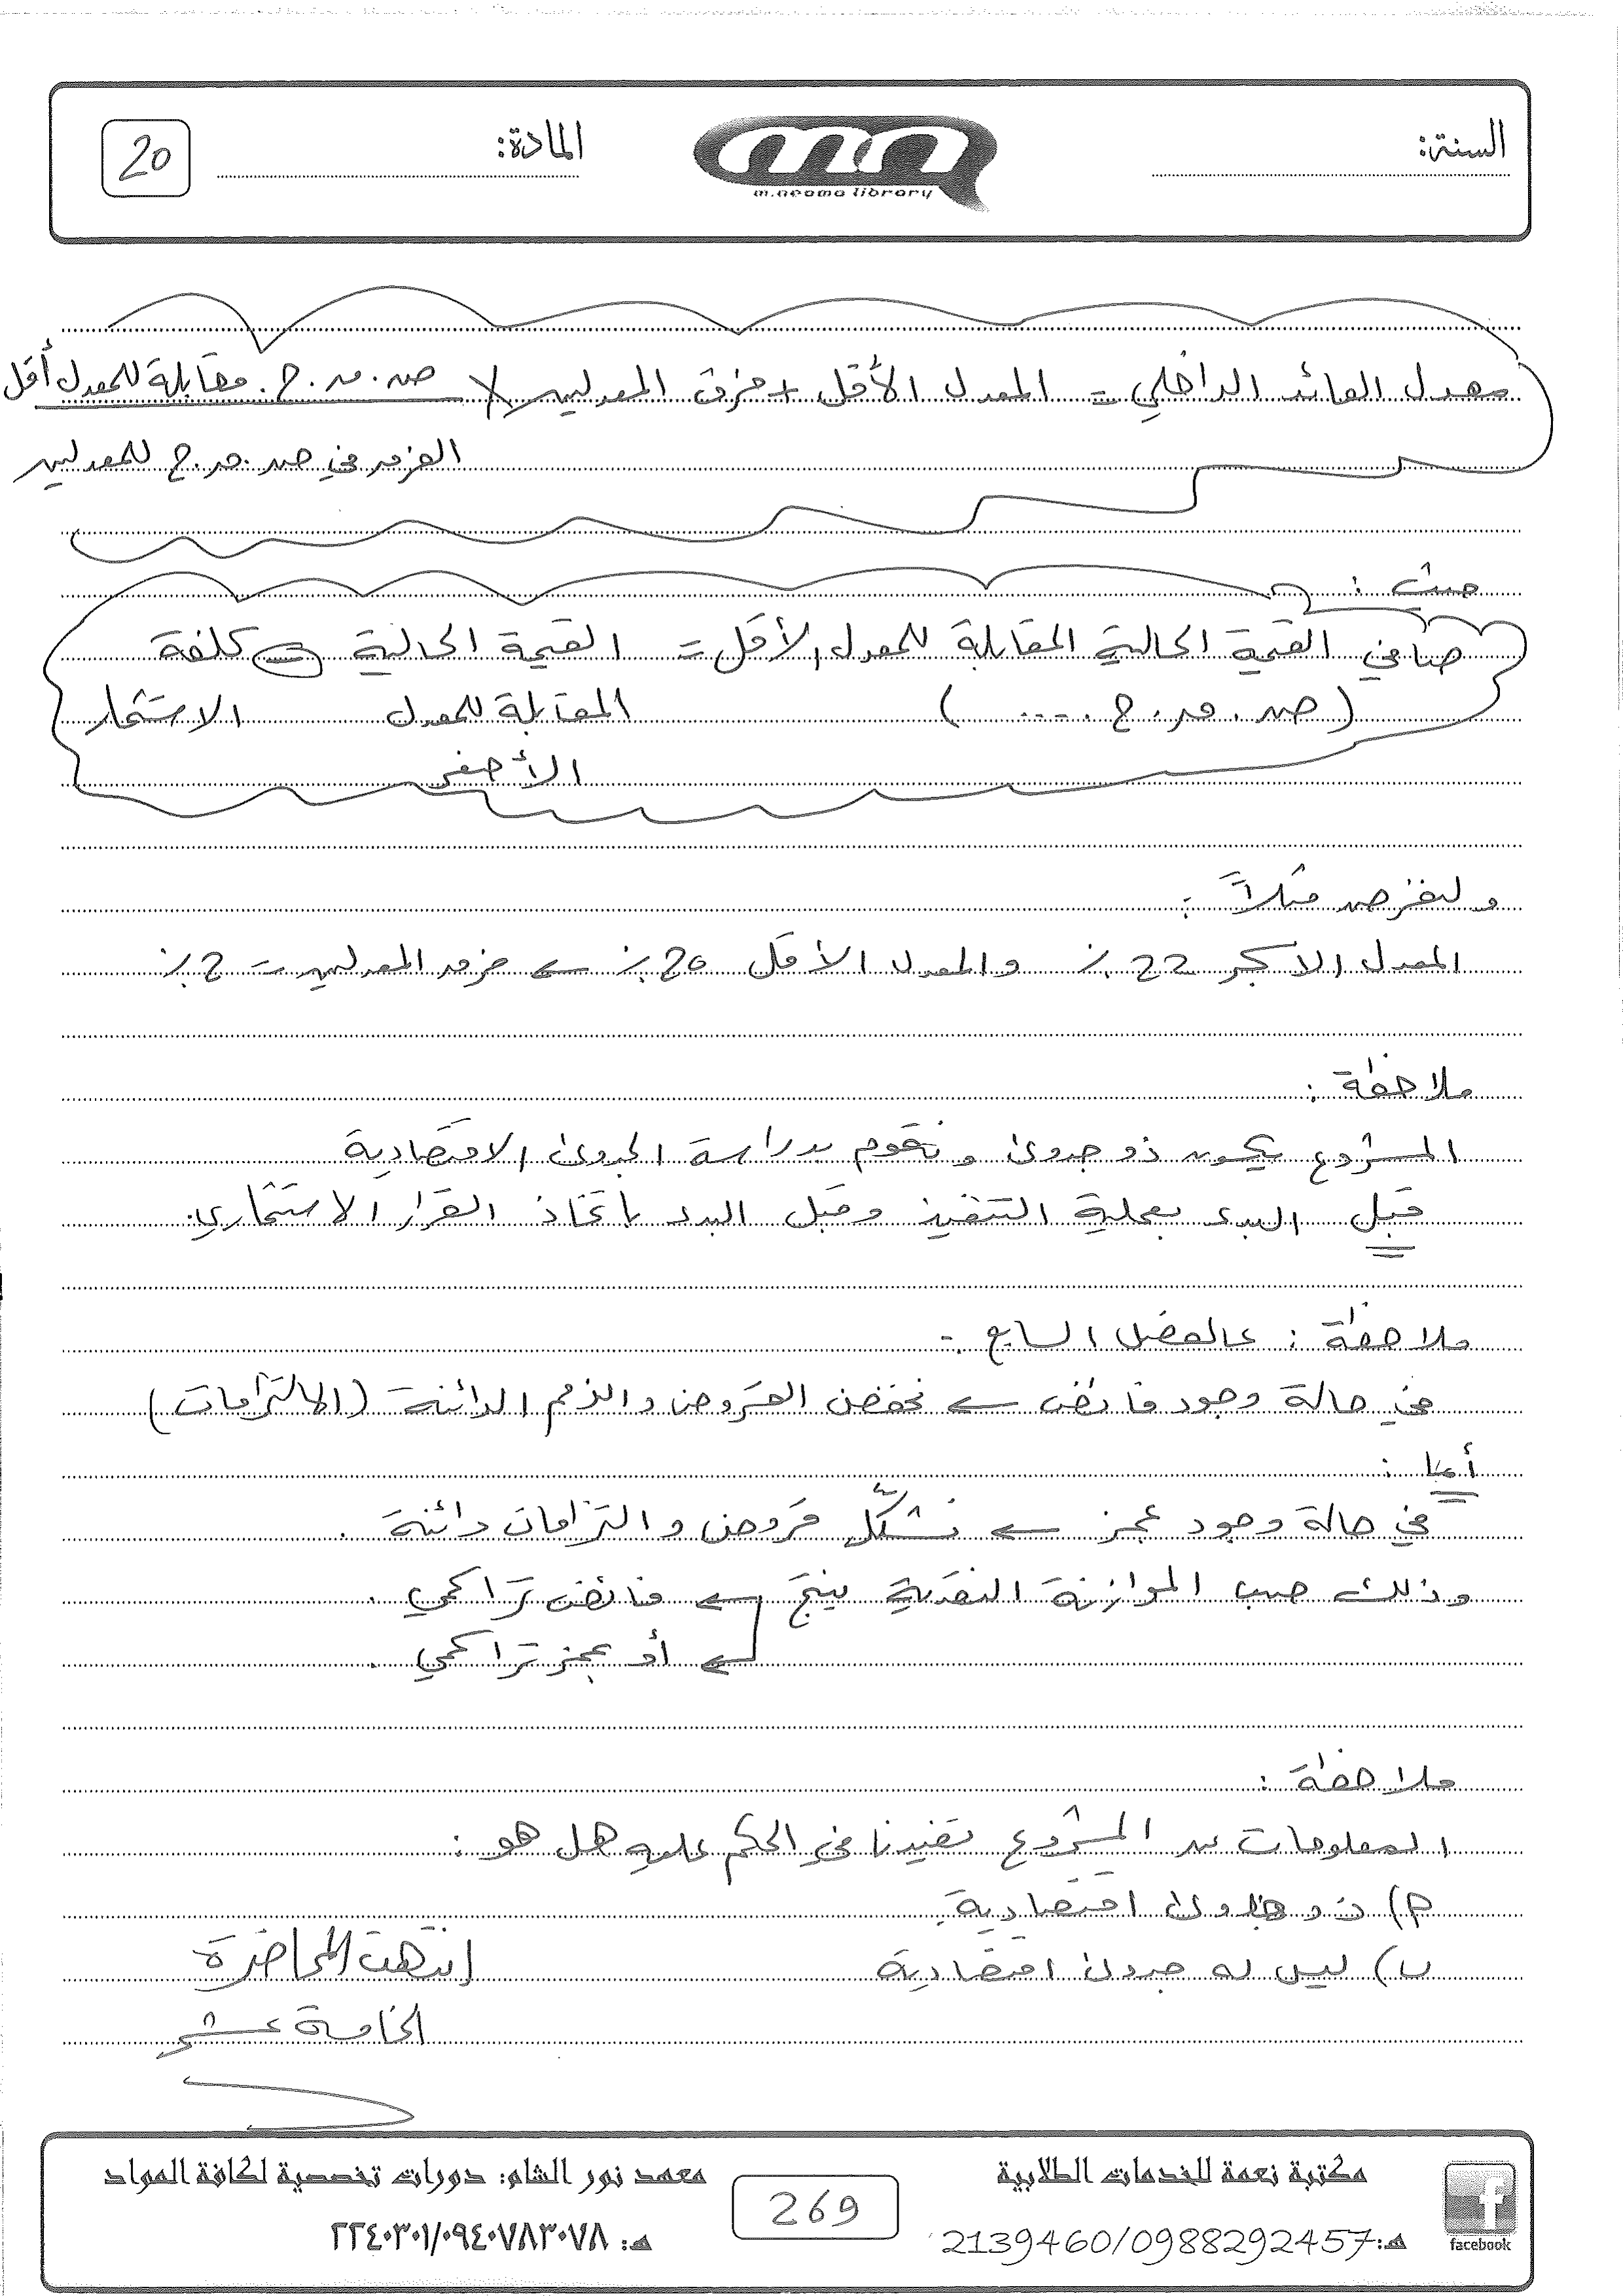 السنة:
m.neama library
المادة:
20
معدل العائد الداخلي = المعدل الأقل + فرق المعدلين × ص.ق.ح. مقابلة للمعدل أقل
الفرق في ص.ق.ح للمعدلين
حيث :
صافي القيمة الحالية المقابلة للمعدل الأقل = القيمة الحالية - كلفة
(ص.ق.ح. ....) المقابلة للمعدل الاستثمار
الأصغر
ولنفرض مثلاً :
المعدل الاكبر 22% والمعدل الأقل 20% ← فرق المعدلين = 2%
ملاحظة :
المشروع يكون ذو جدوى ونقوم بدراسة الجدوى الاقتصادية
قبل البدء بعملية التنفيذ وقبل البدء باتخاذ القرار الاستثماري.
ملاحظة : عالفصل السابع :-
في حالة وجود فائض ← نخفض القروض والذمم الدائنة (الالتزامات)
أما :
في حالة وجود عجز ← نشكّل قروض والتزامات دائنة .
وذلك حسب الموازنة النقدية ينتج ← فائض تراكمي .
← أو عجز تراكمي .
ملاحظة :
المعلومات عن المشروع تفيدنا في الحكم عليه هل هو :
أ) ذو جدوى اقتصادية.
ب) ليس له جدوى اقتصادية
انتهت المحاضرة
الخامسة عشر
مكتبة نعمة للخدمات الطلابية
هـ: 2139460/0988292457
facebook
269
معهد نور الشام: دورات تخصصية لكافة المواد
هـ: ٢٢٤٠٣٠١/٠٩٤٠٧٨٣٠٧٨